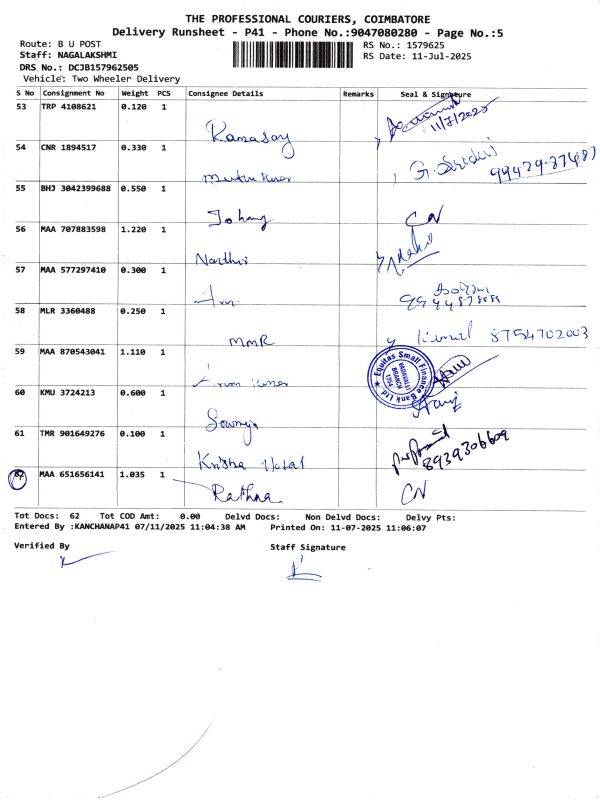 THE PROFESSIONAL COURIERS, COIMBATORE
Delivery Runsheet - P41 - Phone No.:9047080280 - Page No.:5
Route: B U POST
RS No.: 1579625
Staff: NAGALAKSHMI
RS Date: 11-Jul-2025
DRS No.: DCJB157962505
Vehicle: Two Wheeler Delivery
S No Consignment No Weight PCS Consignee Details Remarks Seal & Signature
53 TRP 4108621 0.120 1
Ramasay 11/7/2025
54 CNR 1894517 0.330 1
G. Sridevi
55 BHJ 3042399688 0.550 1
Johny CN
56 MAA 707883598 1.220 1
Nandhi
57 MAA 577297410 0.300 1
58 MLR 3360488 0.250 1
MMR 8754702003
59 MAA 870543041 1.110 1
Equitas Small Finance Bank Ltd
VADAVALLI
BRANCH
1351
Arun Kumar
60 KMU 3724213 0.600 1
Sowmya
61 TMR 901649276 0.100 1
Krisha Hotal 8939306609
62 MAA 651656141 1.035 1
Rathna CN
Tot Docs: 62 Tot COD Amt: 0.00 Delvd Docs: Non Delvd Docs: Delvy Pts:
Entered By :KANCHANAP41 07/11/2025 11:04:38 AM Printed On: 11-07-2025 11:06:07
Verified By Staff Signature